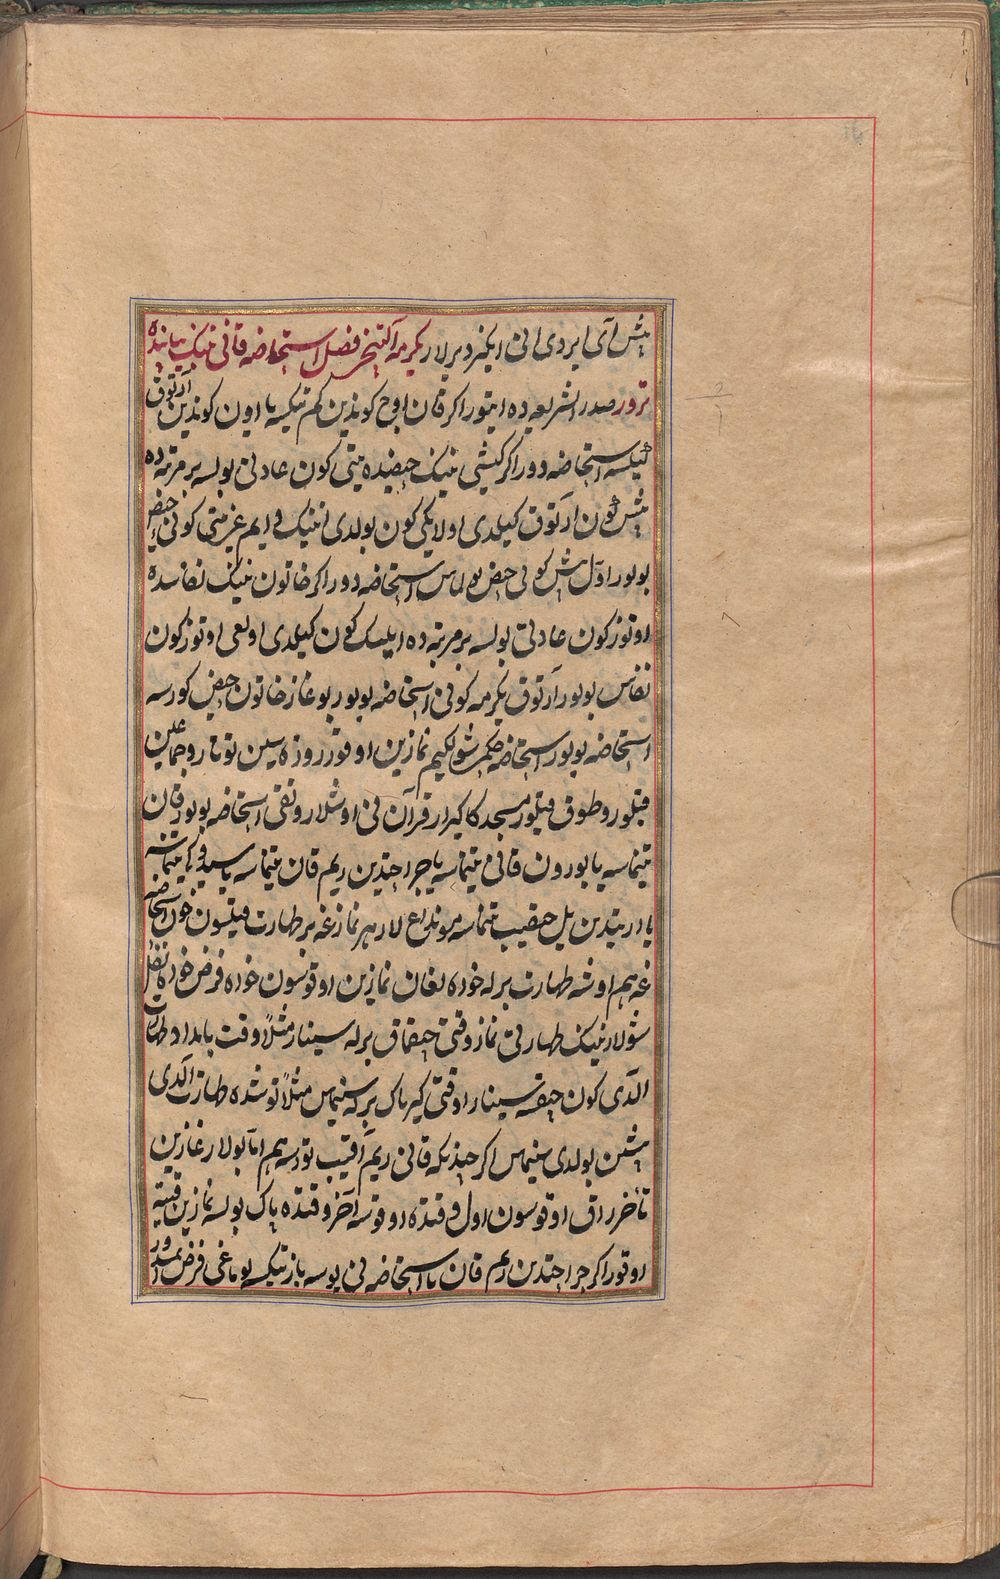 بیش آی ایردی انی ایکنز دیرلار یکرمه آلتینجی فصل استحاضه قانی نینک بیانیده
ترور صدر الشریعه ده ایتور اکر قان اوچ کوندین کم تیکسه یا اون کوندین آرتوق
تیکسه استحاضه دور اکر کیشی نینک حیضیده یتی کون عادتی بولسه بر مرتبه ده
بیش کون آرتوق کیلدی اول ایکی کون بولدی انینک هم غیر یتی کونی حیض
بولور اول بیش کونی حیض بولماس استحاضه دور اکر خاتون نینک نفاسده
اوتوز کون عادتی بولسه بر مرتبه ده ایلیک کون کیلدی اولغی اوتوز کون
نفاس بولور آرتوق یکرمه کونی استحاضه بولور بوغاز خاتون حیض کورسه
استحاضه بولور استحاضه حکمی شولکیم نمازین اوقور روزه سین توتار و جماعین
قیلور و طوف قیلور مسجد کا کیرار قرآن نی اوشلار وتقی استحاضه بولور قان
تیتماسه یا بورون قانی تیتماسه یا جراحتدین ریم قان تیتماسه یا سیدوکی تیتماسه
یا دریتدین یل حقیب تتماسه مونداغ لار هر نمازغه بر طهارت قیلسون خون استحاضه
غه هم اوشه طهارت برله خوده لغان نمازین اوقوسون خوده فرض خوده نفل
شولارنینک طهارتی نماز وقتی چیقماق برله سینار مثلاً وقت بامداد طهارت
آلدی کون چیقسه سینار اوقتی کیرماک برله سینماس مثلاً توشده طهارت آلدی
پیشین بولدی سینماس اکر چندیکه قانی ریم آقیب تورسه هم اما بولار نمازین
تأخر راق اوقوسون اول وقتده اوقوسه آخر وقتده پاک بولسه نمازین قیته
اوقور اکر جراحتدین ریم قان یا استحاضه نی یوسه باز تیکسه یوماغی فرض ایمدور